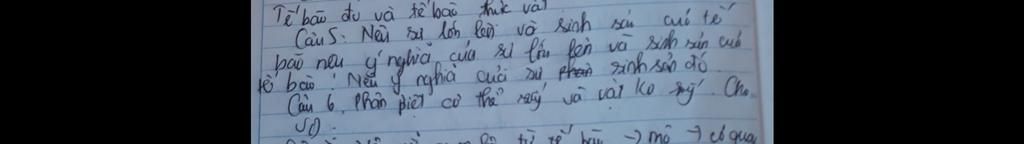 Tế bào đv và tế bào thực vật
Câu 5: Nêu sự lớn lên và sinh sản cuả tế
bào nêu ý nghĩa của sự lớn lên và sinh sản cuả
tế bào! Nêu ý nghĩa cuả sự sinh sản đó
Câu 6. Phân biệt cơ thể và vật ko Cho
VD.
từ tế bào → mô → cơ qua